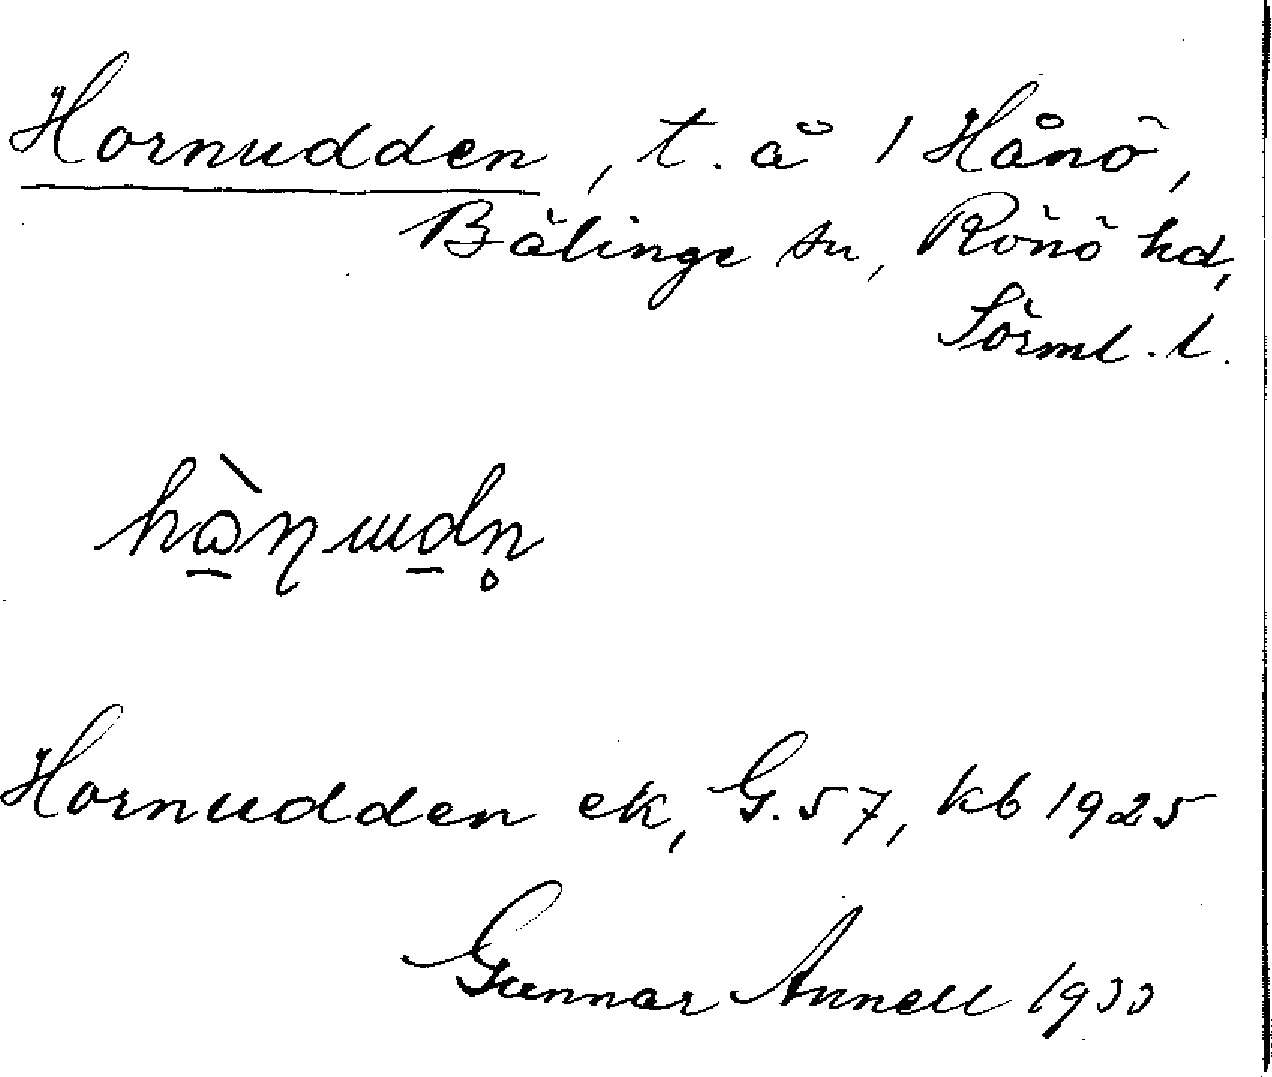 Hornudden, t. å 1 Hånö,
Bälinge sn, Rönö hd,
Sörml. l.
Hornudden ek, G. 57, kb 1925
Gunnar Annell 1933